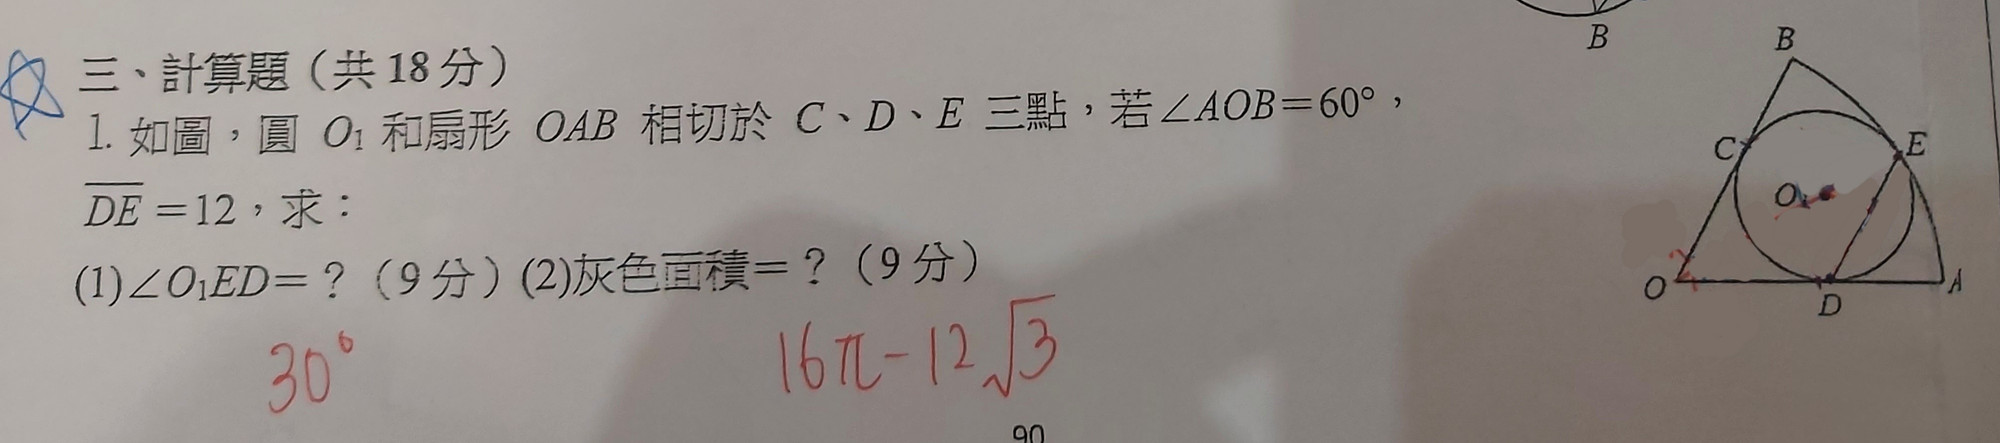 B
三、計算題（共18分）
1. 如圖，圓 O₁ 和扇形 OAB 相切於 C、D、E 三點，若∠AOB=60°，
DE=12，求：
(1)∠O₁ED=？（9分）(2)灰色面積=？（9分）
30°
16π-12√3
90
B
C
E
O₁
O
D
A